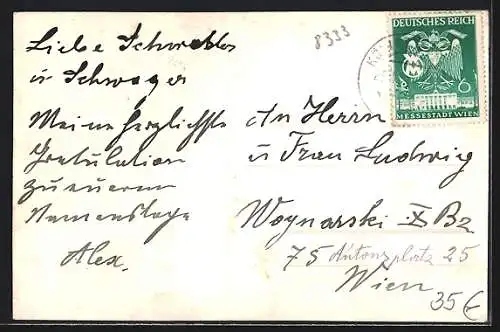 Liebe Schwester
u Schwager
Meine herzlichste
Gratulation
zu euerem
Namenstage
Alex.
8333
DEUTSCHES REICH
6
MESSESTADT WIEN
An Herrn
u Frau Ludwig
Woynarski X Bz
75 Antonsplatz 25
Wien
35€